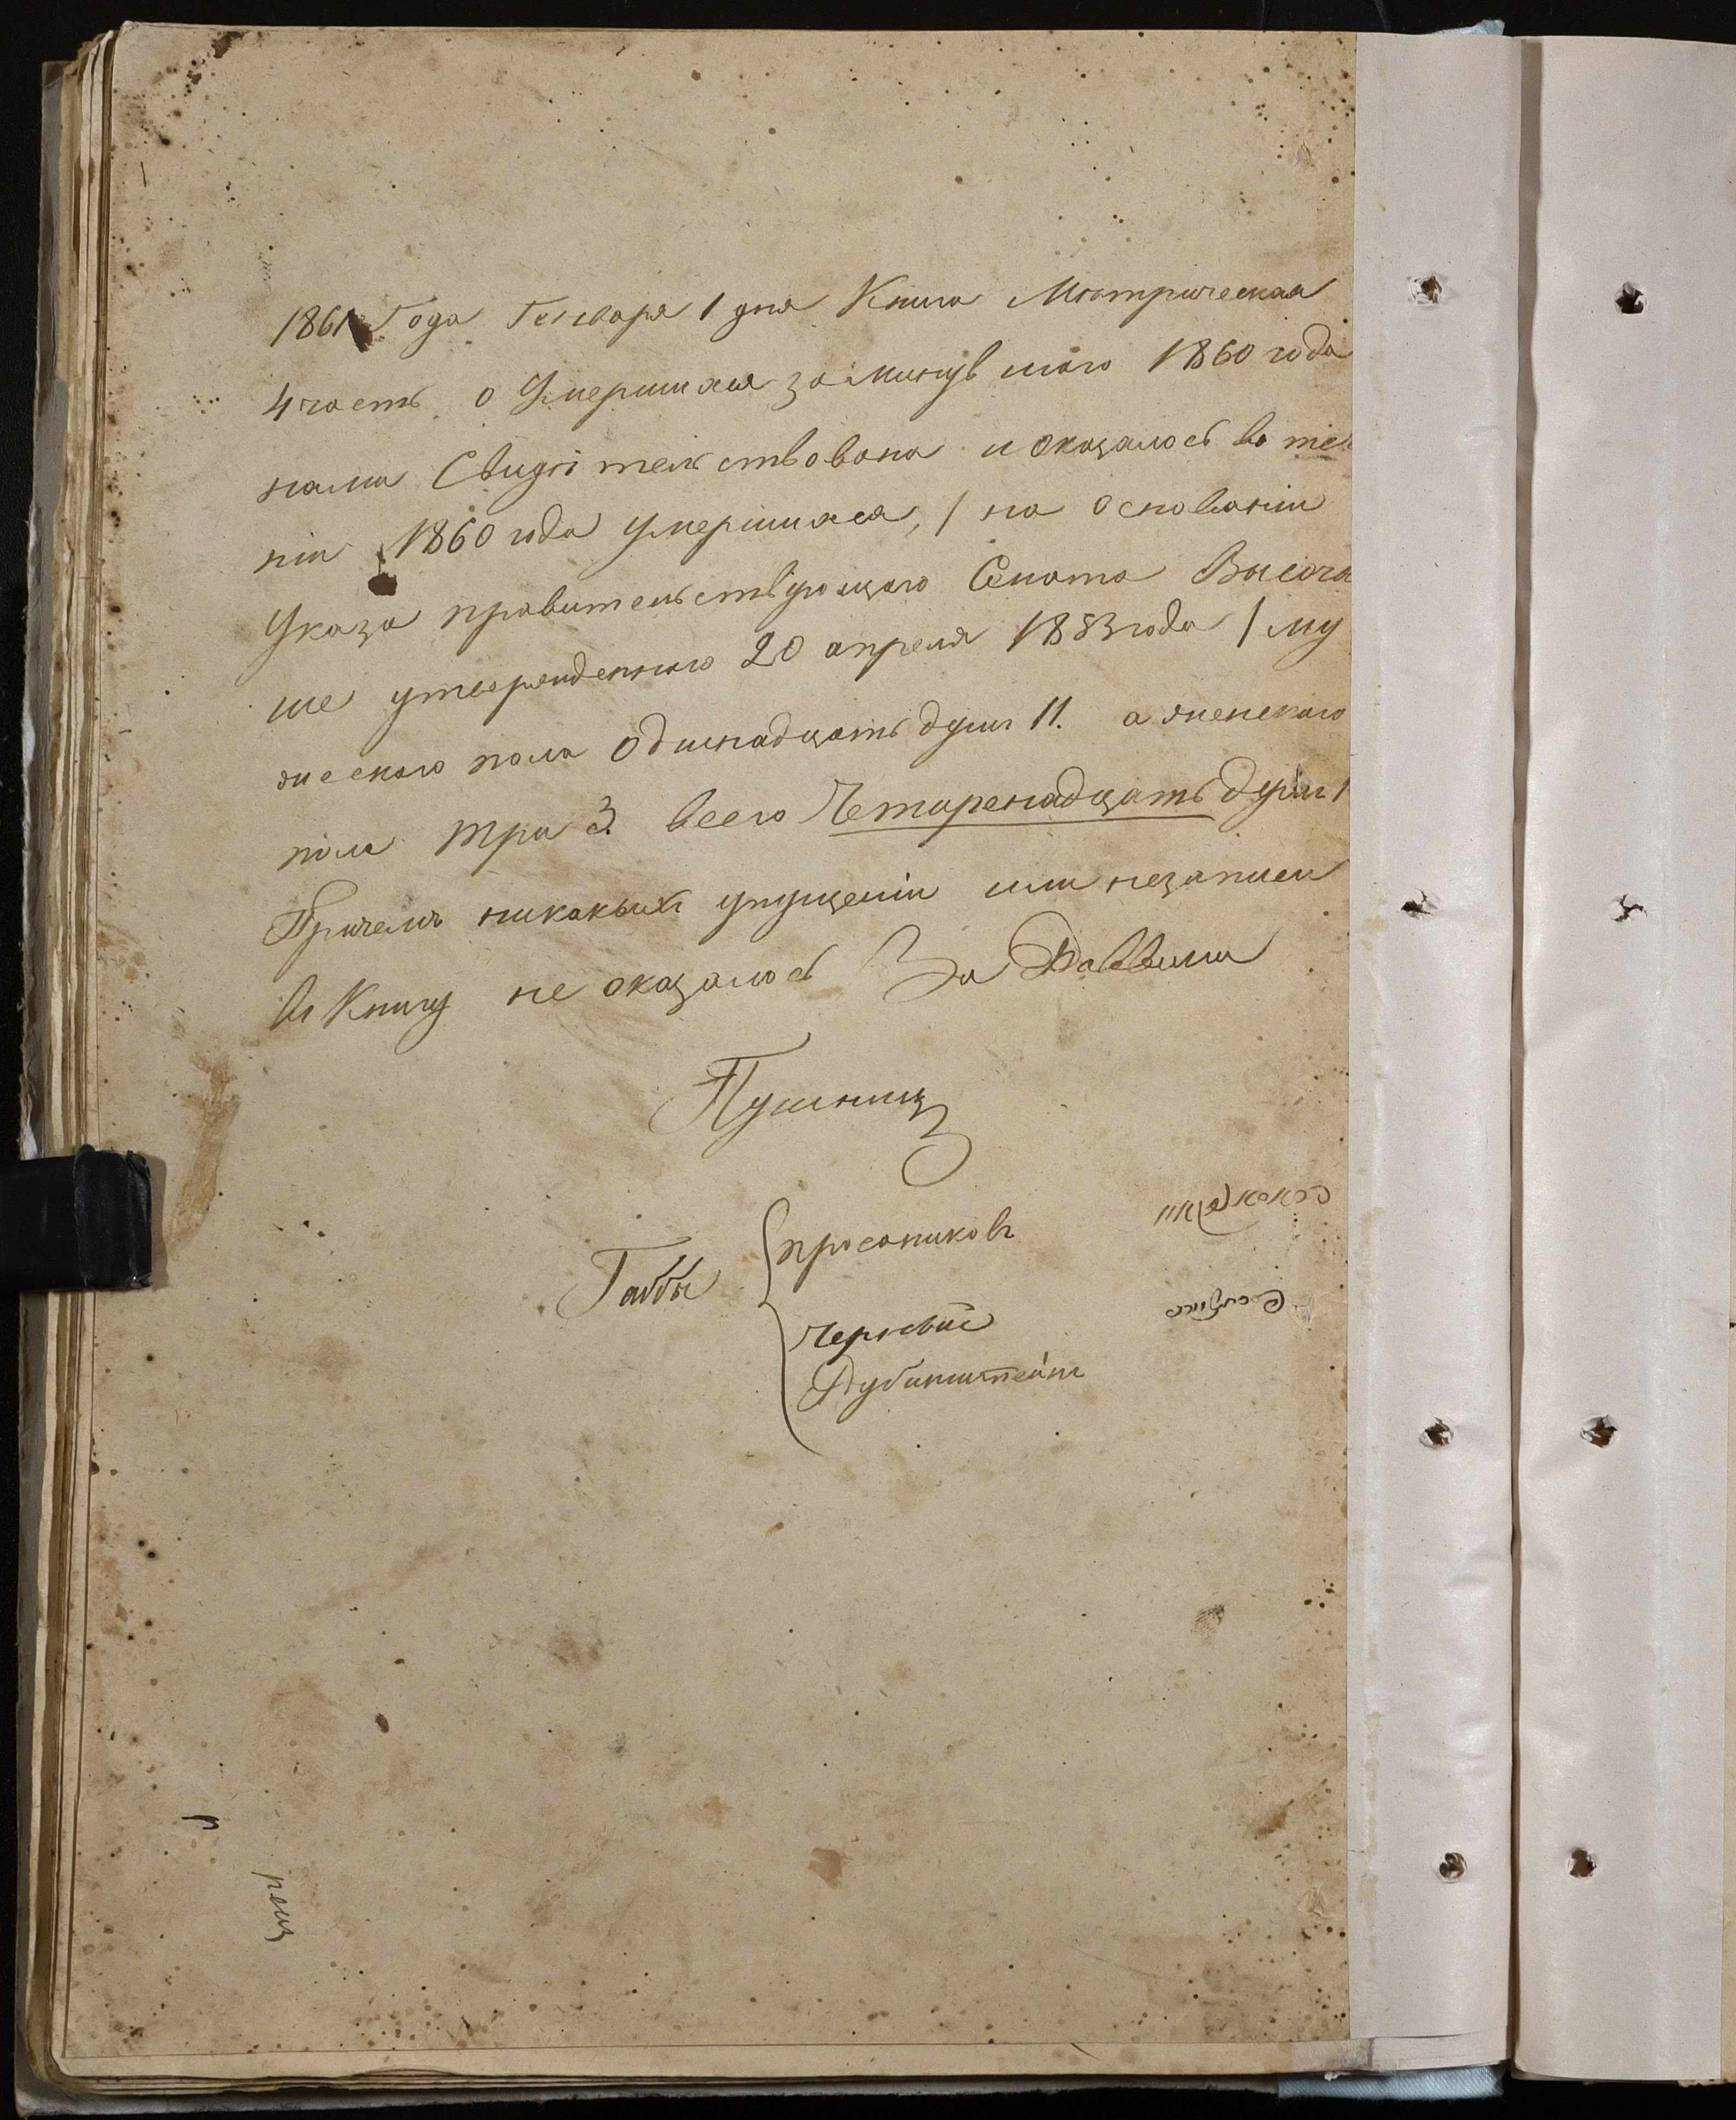 1861 Года Генваря 1 дня Книга Метрическая
4 часть о Умершихся за минувшого 1860 года
нами Свидѣтельствована и оказалось во тече
ніи 1860 года умершихся, / на основаніи
Указа правительствующаго Сената Высоча
ше утвержденного 20 апреля 1853 года / му
жеского пола одинадцать душ 11. а женского
пола три 3. всего Четиренадцать душ 1
Причемъ никакыхъ упущеніи или незаписи
въ Книгу не оказалось За Раввина
Пушниц
Габбы
просаниковъ
Черновъ
Рубинштейнъ